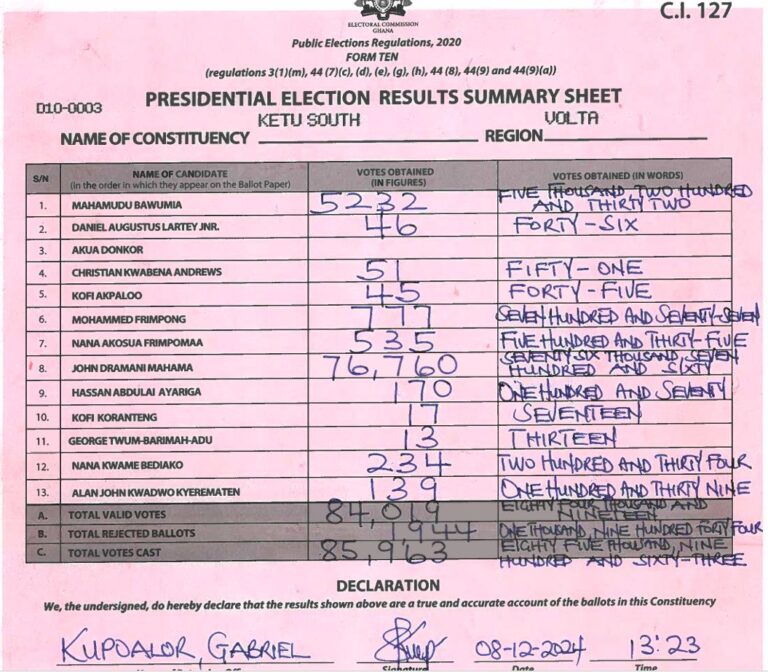 C.I. 127
ELECTORAL COMMISSION
GHANA
Public Elections Regulations, 2020
FORM TEN
(regulations 3(1)(m), 44 (7)(c), (d), (e), (g), (h), 44 (8), 44(9) and 44(9)(a))
PRESIDENTIAL ELECTION RESULTS SUMMARY SHEET
D10-0003 KETU SOUTH VOLTA
NAME OF CONSTITUENCY REGION
S/N NAME OF CANDIDATE (in the order in which they appear on the Ballot Paper) VOTES OBTAINED (IN FIGURES) VOTES OBTAINED (IN WORDS)
1. MAHAMUDU BAWUMIA 5232 FIVE THOUSAND, TWO HUNDRED AND THIRTY TWO
2. DANIEL AUGUSTUS LARTEY JNR. 46 FORTY-SIX
3. AKUA DONKOR
4. CHRISTIAN KWABENA ANDREWS 51 FIFTY-ONE
5. KOFI AKPALOO 45 FORTY-FIVE
6. MOHAMMED FRIMPONG 777 SEVEN HUNDRED AND SEVENTY-SEVEN
7. NANA AKOSUA FRIMPOMAA 535 FIVE HUNDRED AND THIRTY-FIVE
8. JOHN DRAMANI MAHAMA 76,760 SEVENTY SIX THOUSAND, SEVEN HUNDRED AND SIXTY
9. HASSAN ABDULAI AYARIGA 170 ONE HUNDRED AND SEVENTY
10. KOFI KORANTENG 17 SEVENTEEN
11. GEORGE TWUM-BARIMAH-ADU 13 THIRTEEN
12. NANA KWAME BEDIAKO 234 TWO HUNDRED AND THIRTY FOUR
13. ALAN JOHN KWADWO KYEREMATEN 139 ONE HUNDRED AND THIRTY NINE
A. TOTAL VALID VOTES 84,019 EIGHTY FOUR THOUSAND AND NINETEEN
B. TOTAL REJECTED BALLOTS 1,944 ONE THOUSAND, NINE HUNDRED FORTY FOUR
C. TOTAL VOTES CAST 85,963 EIGHTY FIVE THOUSAND, NINE HUNDRED AND SIXTY-THREE
DECLARATION
We, the undersigned, do hereby declare that the results shown above are a true and accurate account of the ballots in this Constituency
KUPUALOR, GABRIEL 08-12-2024 13:23
Signature Date Time